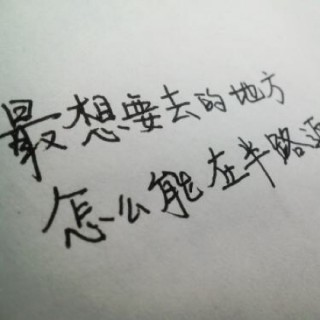 最想要去的地方
怎么能在半路返